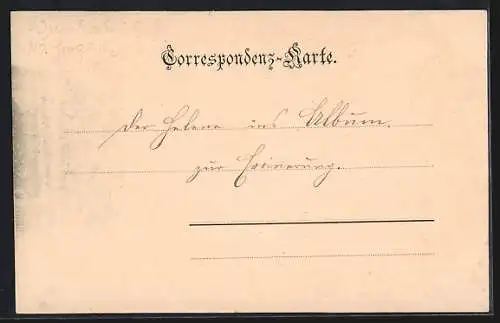 Correspondenz-Karte.
Der Helene ins Album.
zur Erinnerung.